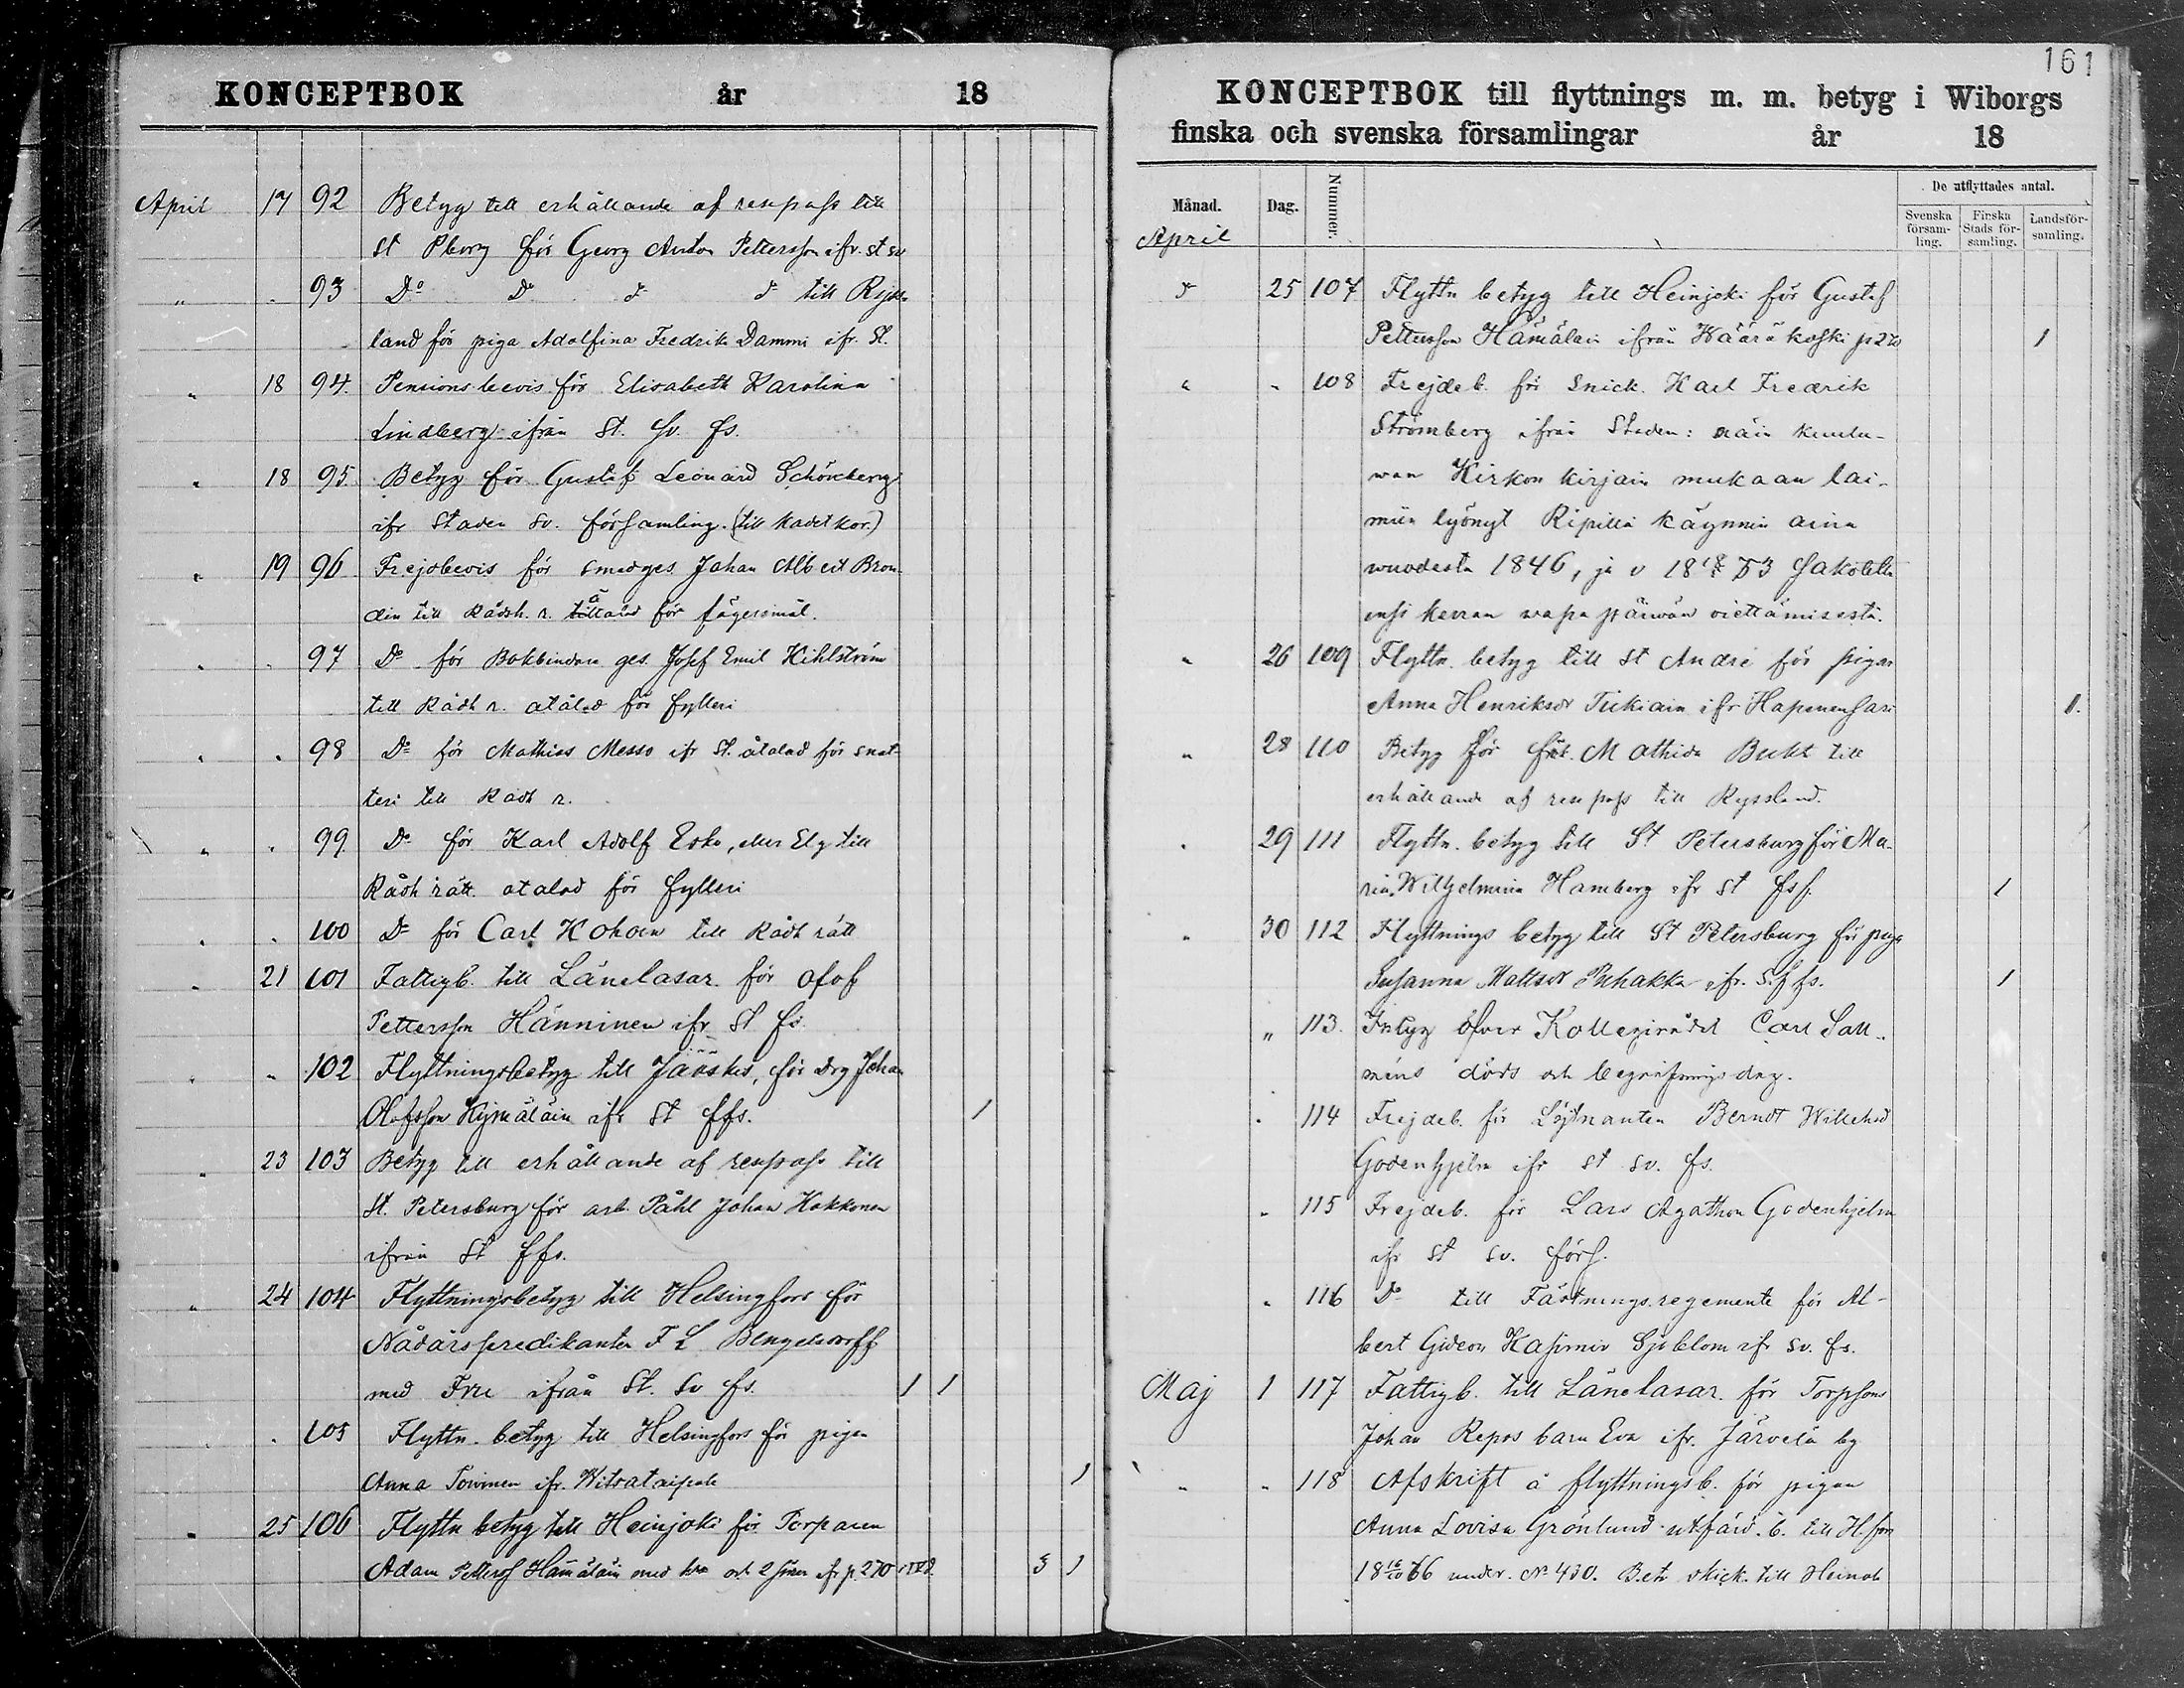 KONCEPTBOK år 18
April 17 92 Betyg till erhållande af respass till
St Pborg för Georg Anton Pettersson ifr. st sv
" . 93 Do Do d d till Ryss
land för piga Adolfina Fredrika Dammi ifr. St.
" 18 94. Pensionsbevis för Elisabeth Karolina
Lindberg ifrån St. Sv. fs.
" 18 95. Betyg för Gustaf Leonard Schöneberg
ifr Staden Sv. församling. (till Kadet kor.)
" 19 96 Frejdbevis för smedges Johan Albert Bron
din till Rådsh. r. åtalad för
" . 97 Do för Bokbindare ges. Josef Emil Kihlström
till Rådh r. åtalad för fylleri
" . 98 Do för Mathias Messo ifr St. åtalad för snat
teri till Rådh r.
" . 99 Do för Karl Adolf Esko, eller Elg till
Rådh rätt åtalad för fylleri
" . 100 Do för Carl Kohoin till Rådh rätt
" 21 101 Fattigb. till Länelasar. för Olof
Pettersson Hänninen ifr St fs.
" " 102 Flyttningsbetyg till Jääskis, för Drg Johan
Olofsson Kymäläin ifr St ffs. 1
" 23 103 Betyg till erhållande af respass till
St. Petersburg för arb. Påhl Johan Hakkonen
ifrån St ffs.
" 24 104 Flyttningsbetyg till Helsingfors för
Nådårspredikanten F L Bengelsdorff
med Fru ifrån St. Sv fs. 1 1
. 105 Flyttn. betyg till Helsingfors för pigan
Anna Toivinen ifr. Witsataipale 1
" 25 106 Flyttn betyg till Heinjoki för Torparen
Adam Petterss Hämäläin med hu och 2 söner ifr p. 270 3 1
161
KONCEPTBOK till flyttnings m. m. betyg i Wiborgs
finska och svenska församlingar år 18
Månad. Dag. Nummer. De utflyttades antal.
Svenska församling. Finska Stads församling. Landsförsamling.
April
d 25 107 Flyttn betyg till Heinjoki för Gustaf
Pettersson Hämäläin ifrån Häärä koski p 270 1
" " 108 Frejdeb. för Snick. Karl Fredrik
Strömberg ifrån Staden: näin kuulu-
wan Kirkon kirjain mukaan lai-
miin lyönyt Ripillä käynnin aina
wuodesta 1846, ja v 18 53 Sakotettu
ensi kerran wapa päiwän viettämisestä.
" 26 109 Flyttn. betyg till St André för pigan
Anna Henriksdr Tiikiain ifr Hapenensari 1.
" 28 110 Betyg för frök. Mathida Bukt till
erhållande af respass till Ryssland.
" 29 111 Flyttn. betyg till St Petersburg för Ma-
ria Wilhelmina Hamberg ifr St fsf. 1
" 30 112 Flyttnings betyg till St Petersburg för piga
Susanna Mattsdr Puhakka ifr. S.f fs. 1
" 113. Intyg öfver Kollegirådet Carl Sall-
méns döds och begrafnings dag.
. 114 Frejdeb. för Löjtnanten Berndt Willehad
Godenhjelm ifr st sv. fs.
" 115 Frejdeb. för Lars Agathon Godenhjelm
ifr st sv. förs.
" 116 Do till Fästnings regemente för Al-
bert Gideon Kasimir Sjöblom ifr sv. fs.
Maj 1 117 Fattigb. till Länelasar. för Torpsons
Johan Repos barn Eva ifr. Järvelä by
" " 118 Afskrift å flyttningsb. för pigan
Anna Lovisa Grönlund utfärd. b. till H.fors
18 66 under. No 430. Bets skick. till Heinola